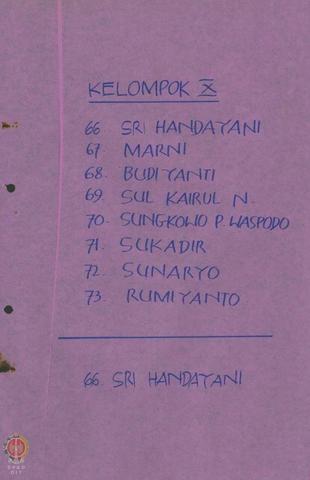 KELOMPOK X
66 SRI HANDAYANI
67. MARNI
68. BUDIYANTI
69. SUL KAIRUL N.
70. SUNGKOWO P. WASPODO
71. SUKADIR
72. SUNARYO
73. RUMIYANTO
66. SRI HANDAYANI
DPAD
DIY